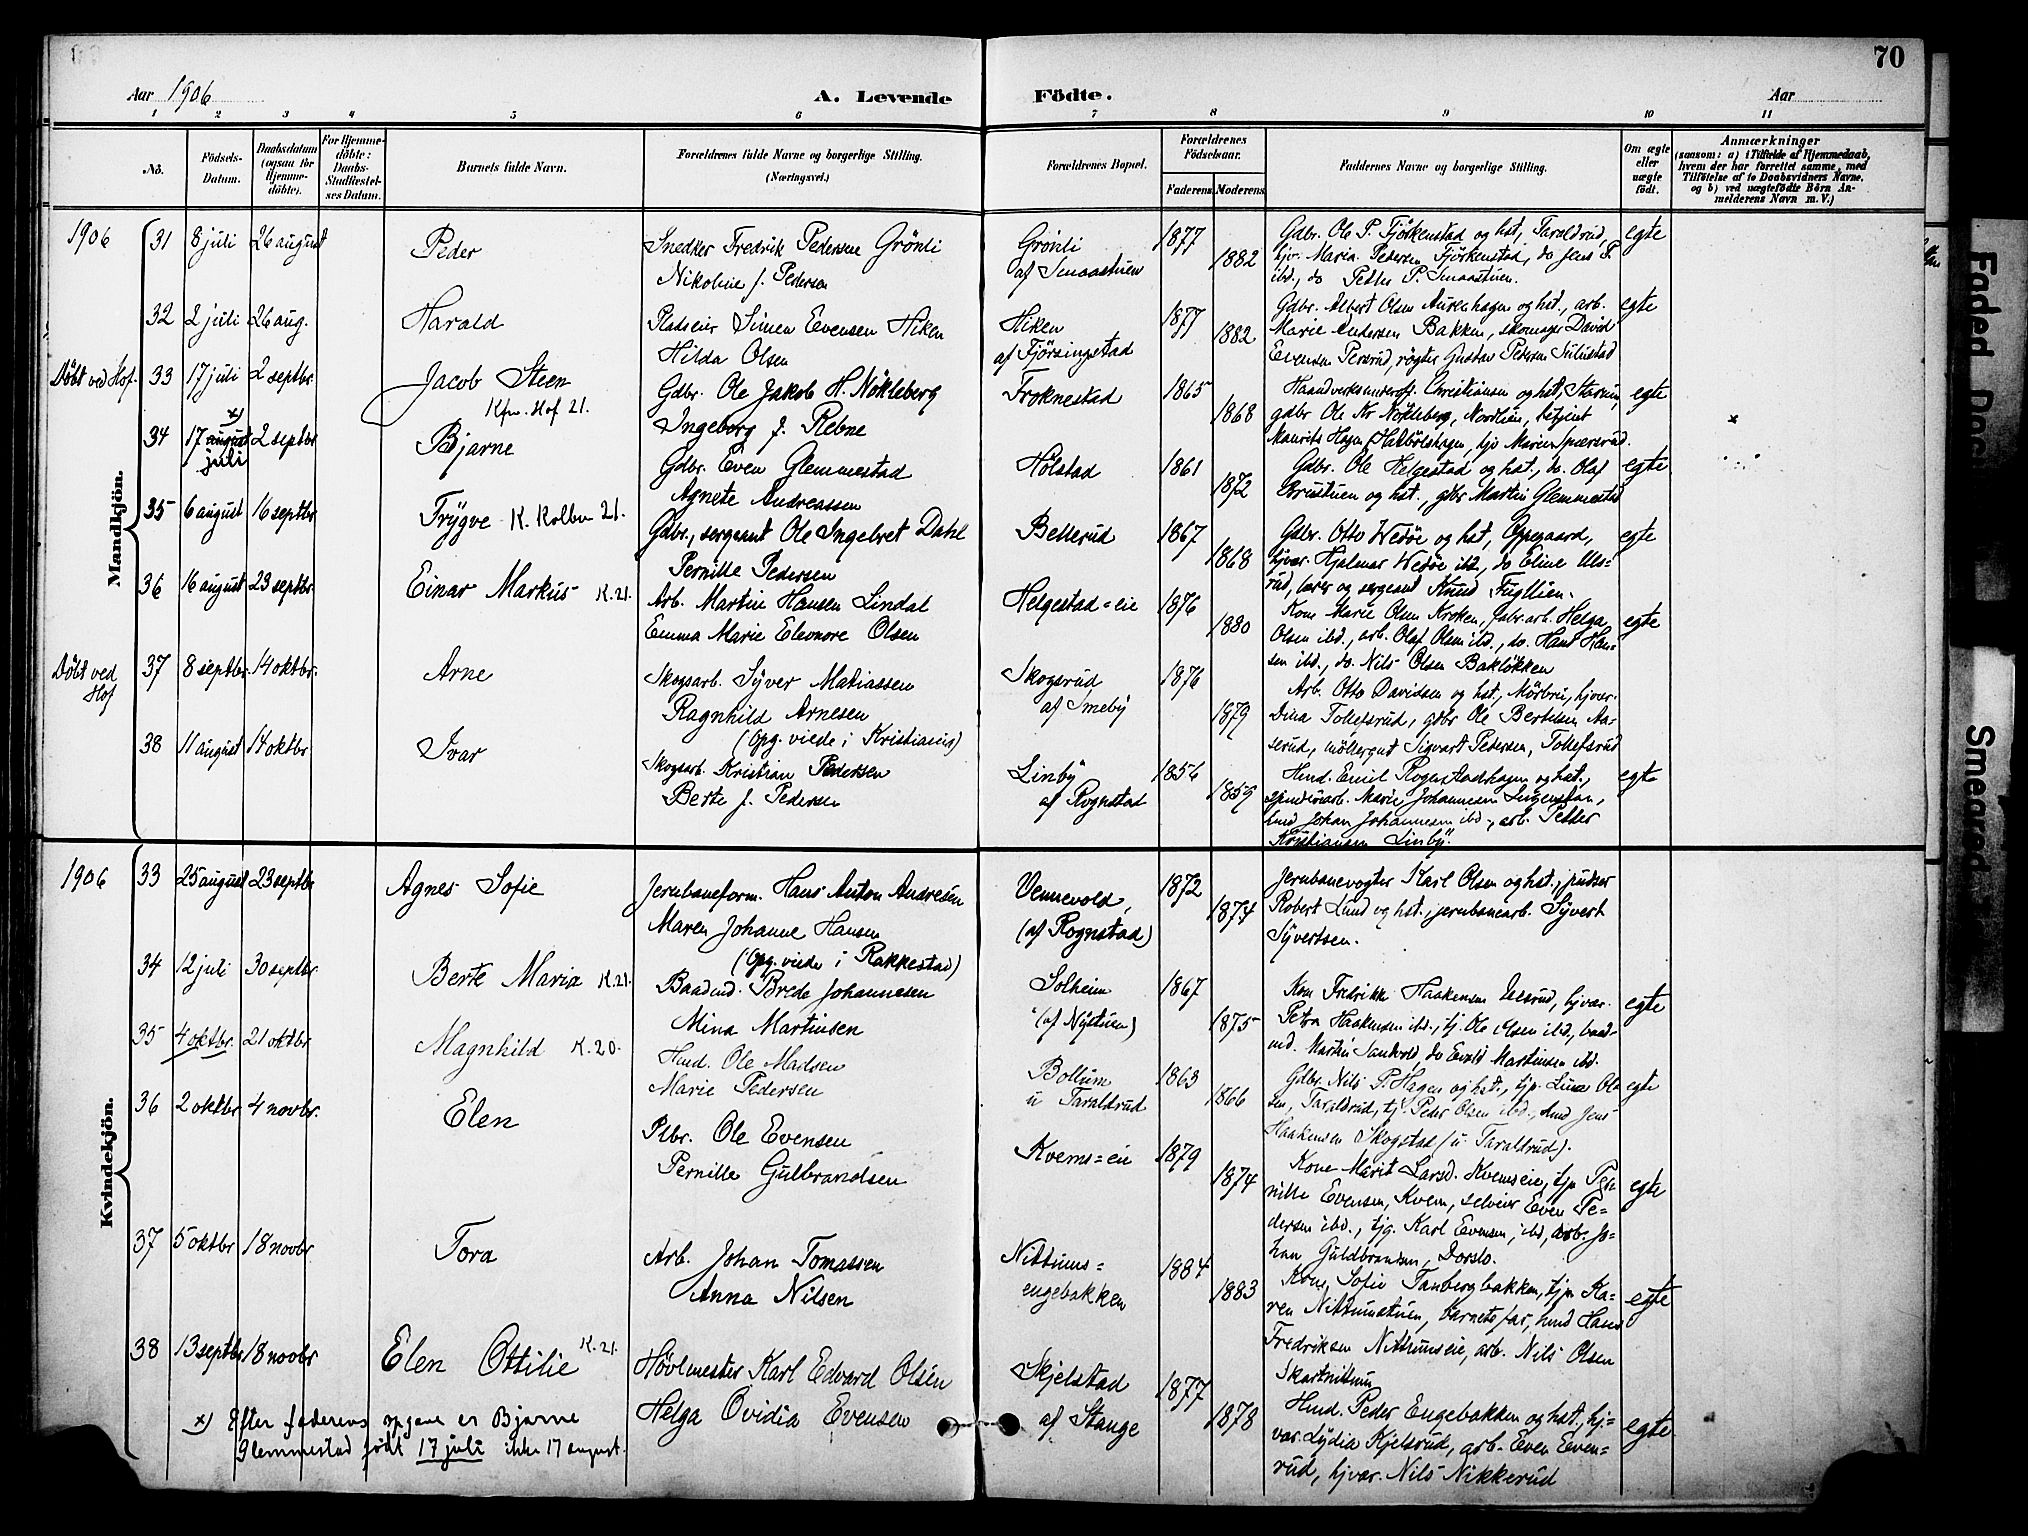 70
Aar 1906
A. Levende Födte.
Aar
1 2 3 4 5 6 7 8 9 10 11
No.
Födsels-Datum.
Daabsdatum (ogsaa for Hjemmedöbte).
For Hjemmedöbte: Daabs-Stadfestelses Datum.
Barnets fulde Navn.
Forældrenes fulde Navne og borgerlige Stilling.
(Næringsvei.)
Forældrenes Bopæl.
Forældrenes Födselsaar.
Faderens Moderens
Faddernes Navne og borgerlige Stilling.
Om ægte eller uægte födt.
Anmærkninger
(saasom: a) i Tilfælde af Hjemmedaab, hvem der har forrettet samme, med Tilföielse af to Daabsvidners Navne, og b) ved uægtefödte Börn Anmelderens Navn m. V.)
Mandkjön.
1906 31 8 juli 26 august Peder
Snedker Fredrik Pedersen Grönli
Nikoline f. Pedersen
Grönli
af Smaastuen
1877 1882
Gdbr. Ole P. Fjörkenstad og hst, Taraldrud,
hjv. Maria Pedersen Fjörkenstad, do Jens P.
ibd., do Petter P. Smaastuen.
egte
32 2 juli 26 aug. Harald
Pladseier Simen Evensen Hiken
Hilda Olsen
Hiken
af Fjörsingstad
1877 1882
Gdbr. Albert Olsen Aurenhagen og hst, arb.
Marie Andersen Bakken, skomager David
Evensen Persrud, rögter Gustav Pedersen
egte
Döbt ved Hof. 33 17 juli 2 septbr. Jacob Steen
Kfm. Hof 21.
Gdbr. Ole Jakob H. Nökleberg
Ingeborg f. Rebne
Froknestad
1865 1868
Haandverksunderof. Christiansen og hst,
gdbr Ole Nökleberg, Nordlien, betjent
Maurits Hagen
egte
x
34 17 august x) juli 2 septbr Bjarne
Gdbr. Even Glemmestad
Agnete Andreassen
Hölstad
1861 1872
Gdbr. Ole Helgestad og hst, do. Olaf
og hst., gdbr Martin Glemmestad
egte
35 6 august 16 septbr. Trygve K. Kolbu 21.
Gdbr., sergeant Ole Ingebret Dahl
Pernille Pedersen
Bellerud
1867 1868
Gdbr. Otto Wedöe og hst, Oppegaard,
hjvær. Hjalmar Wedöe ibd, do Eline Uls-
rud, lærer og sergeant Knud Fuglien.
egte
36 16 august 23 septbr. Einar Markus K. 21.
Arb. Martin Hansen Lindal
Emma Marie Eleonore Olsen
Helgestad=eie
1876 1880
Kone Marie Olsen Kroken, fabr.arb. Helga
Olsen ibd., arb. Olaf Olsen ibd., do. Hans Han-
sen ibd., do. Nils Olsen Baklökken
egte
Döbt ved Hof 37 8 septbr. 14 oktbr. Arne
Skogsarb. Syver Matiassen
Ragnhild Arnesen
(Opg. viede i Kristiania)
Skogsrud
af Smeby
1876 1879
Arb. Otto Davidsen og hst, Mörbrii, hjvær.
Dina Tollefsrud, gdbr Ole Bertelsen Aa-
serud, möllergut Sigvart Pedersen, Tollefsrud
38 11 august 14 oktbr Ivar
Skogsarb. Kristian Pedersen
Berte f. Pedersen
Linby
af Rognstad
1854 1859
Hmd. Emil Rognstadshagen og hst.,
arb. Marie Johannesen
hmd Johan Johannesen ibd., arb. Petter
Kristiansen Linby.
egte
Kvindekjön.
1906 33 25 august 23 septbr Agnes Sofie
Jernbaneform. Hans Anton Andresen
Maren Johanne Hansen
(Opg. viede i Rakkestad)
Vennevold,
(af Rognstad)
1872 1874
Jernbanevogter Karl Olsen og hst., pudser
Robert Lund og hst., jernbanearb. Syvert
Syvertsen.
34 12 juli 30 septbr. Berte Maria K. 21.
Baadmd. Brede Johannesen
Mina Martinsen
Solheim
(af Nystuen)
1867 1875
Kone Fredrikke Haakensen, hjvær.
Petra Haakensen ibd., tj. Ole Olsen ibd, baad-
md. Martin Sandvold, do Evald Martinsen ibd.
egte
35 4 oktbr. 21 oktbr Magnhild K. 20.
Hmd. Ole Madsen
Marie Pedersen
Bollum
u Taraldrud
1863 1866
Gdbr. Nils P. Hagen og hst., tjp. Lina Ol-
sen, Taraldrud, tj. Peder Olsen ibd., hmd Jens
Haakensen Skogstad (u. Taraldrud).
egte
36 2 oktbr 4 novbr. Elen
Plbr. Ole Evensen
Pernille Gulbrandsen
Kvems=eie
1879 1874
Kone Marit Larsd. Kvemseie, tjp Per-
nille Evensen, Kvem, selveier Even Pe-
dersen ibd., tjg. Karl Evensen, ibd, arb. Jo-
han Guldbrandsen, Dorslo.
egte
37 5 oktbr 18 novbr Tora
Arb. Johan Tomassen
Anna Nilsen
Nittums=
engebakken
1884 1883
Kone Sofie Tanbergbakken, tjp Ka-
ren Nittumstuen, barnets far, hmd Hans
Fredriksen Nittumseie, arb. Nils Olsen
Skartnittum
egte
38 13 septbr 18 novbr Elen Ottilie K. 21.
Hövlmester Karl Edvard Olsen
Helga Ovidia Evensen
Skjelstad
af Stange
1877 1878
Hmd. Peder Engebakken og hst., hj-
vær. Lydia Kjelsrud, arb. Even Even-
rud, hjvær. Nils Nikkerud
egte
x) Efter faderens opgave er Bjarne
Glemmestad födt 17 juli ikke 17 august.
Faded
Smeared